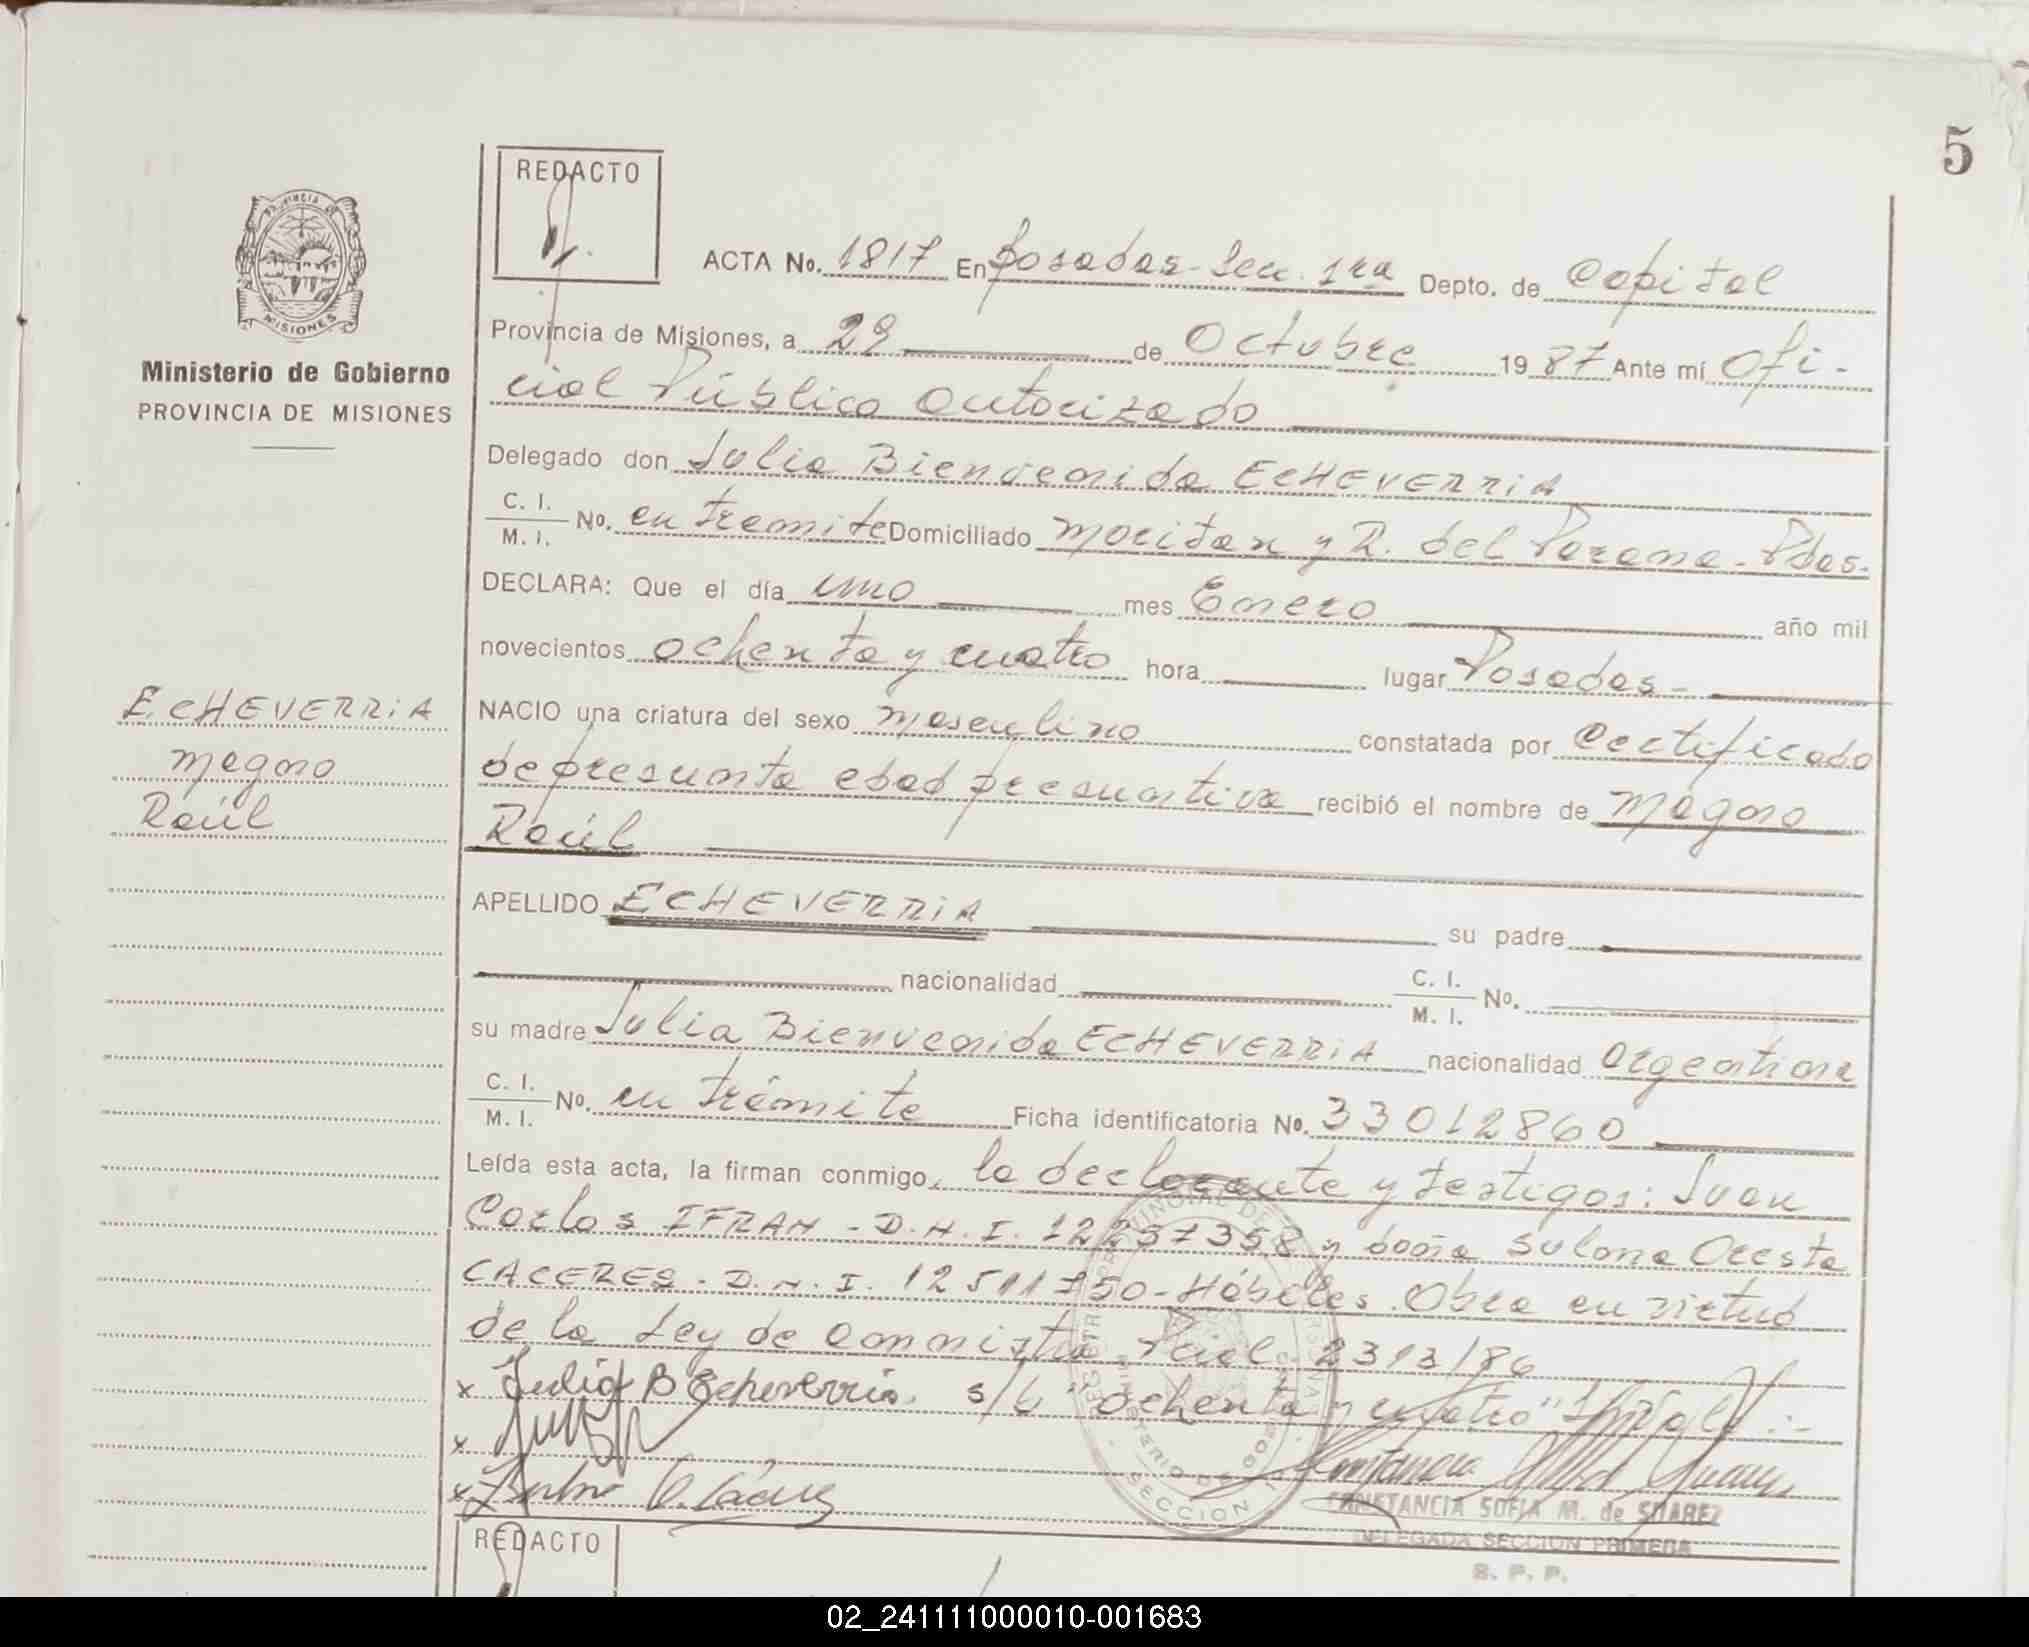 5
REDACTO
PROVINCIA DE
MISIONES
Ministerio de Gobierno
PROVINCIA DE MISIONES
ACTA No. 1817 En Posadas - Secc. 1ra Depto. de Capital
Provincia de Misiones, a 29 de Octubre 1987 Ante mí Ofi-
cial Público autorizado
Delegado don Julia Bienvenida ECHEVERRIA
C. I.
M. I. No. en trámite Domiciliado y R. del Parana - Pdas.
DECLARA: Que el día uno mes Enero año mil
novecientos ochenta y cuatro hora lugar Posadas -
NACIO una criatura del sexo masculino constatada por Certificado
de presunta edad presuntiva recibió el nombre de Magno
Raúl
ECHEVERRIA
Magno
Raúl
APELLIDO ECHEVERRIA su padre
nacionalidad C. I.
M. I. No.
su madre Julia Bienvenida ECHEVERRIA nacionalidad Argentina
C. I.
M. I. No. en trámite Ficha identificatoria No. 33012860
Leída esta acta, la firman conmigo, la declarante y testigos: Juan
Carlos IFRAN - D.N.I. 12257358 y doña Sulma Oresta
CACERES - D.N.I. 12511750 - Hábiles. Obra en virtud
de la Ley de amnistia Pcial. 2313/86
x Julia B Echeverria s/b "ochenta y cuatro" Vale :-
x
x
CONSTANCIA SOFIA M. de SUAREZ
DELEGADA SECCION PRIMERA
R. P. P.
REDACTO
02_241111000010-001683